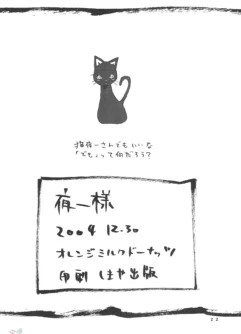 猫夜一さんでもいいな
「でも」って何だろう?
夜一様
2004 12.30
オレンジミルクドーナッツ
印刷 しまや出版
22